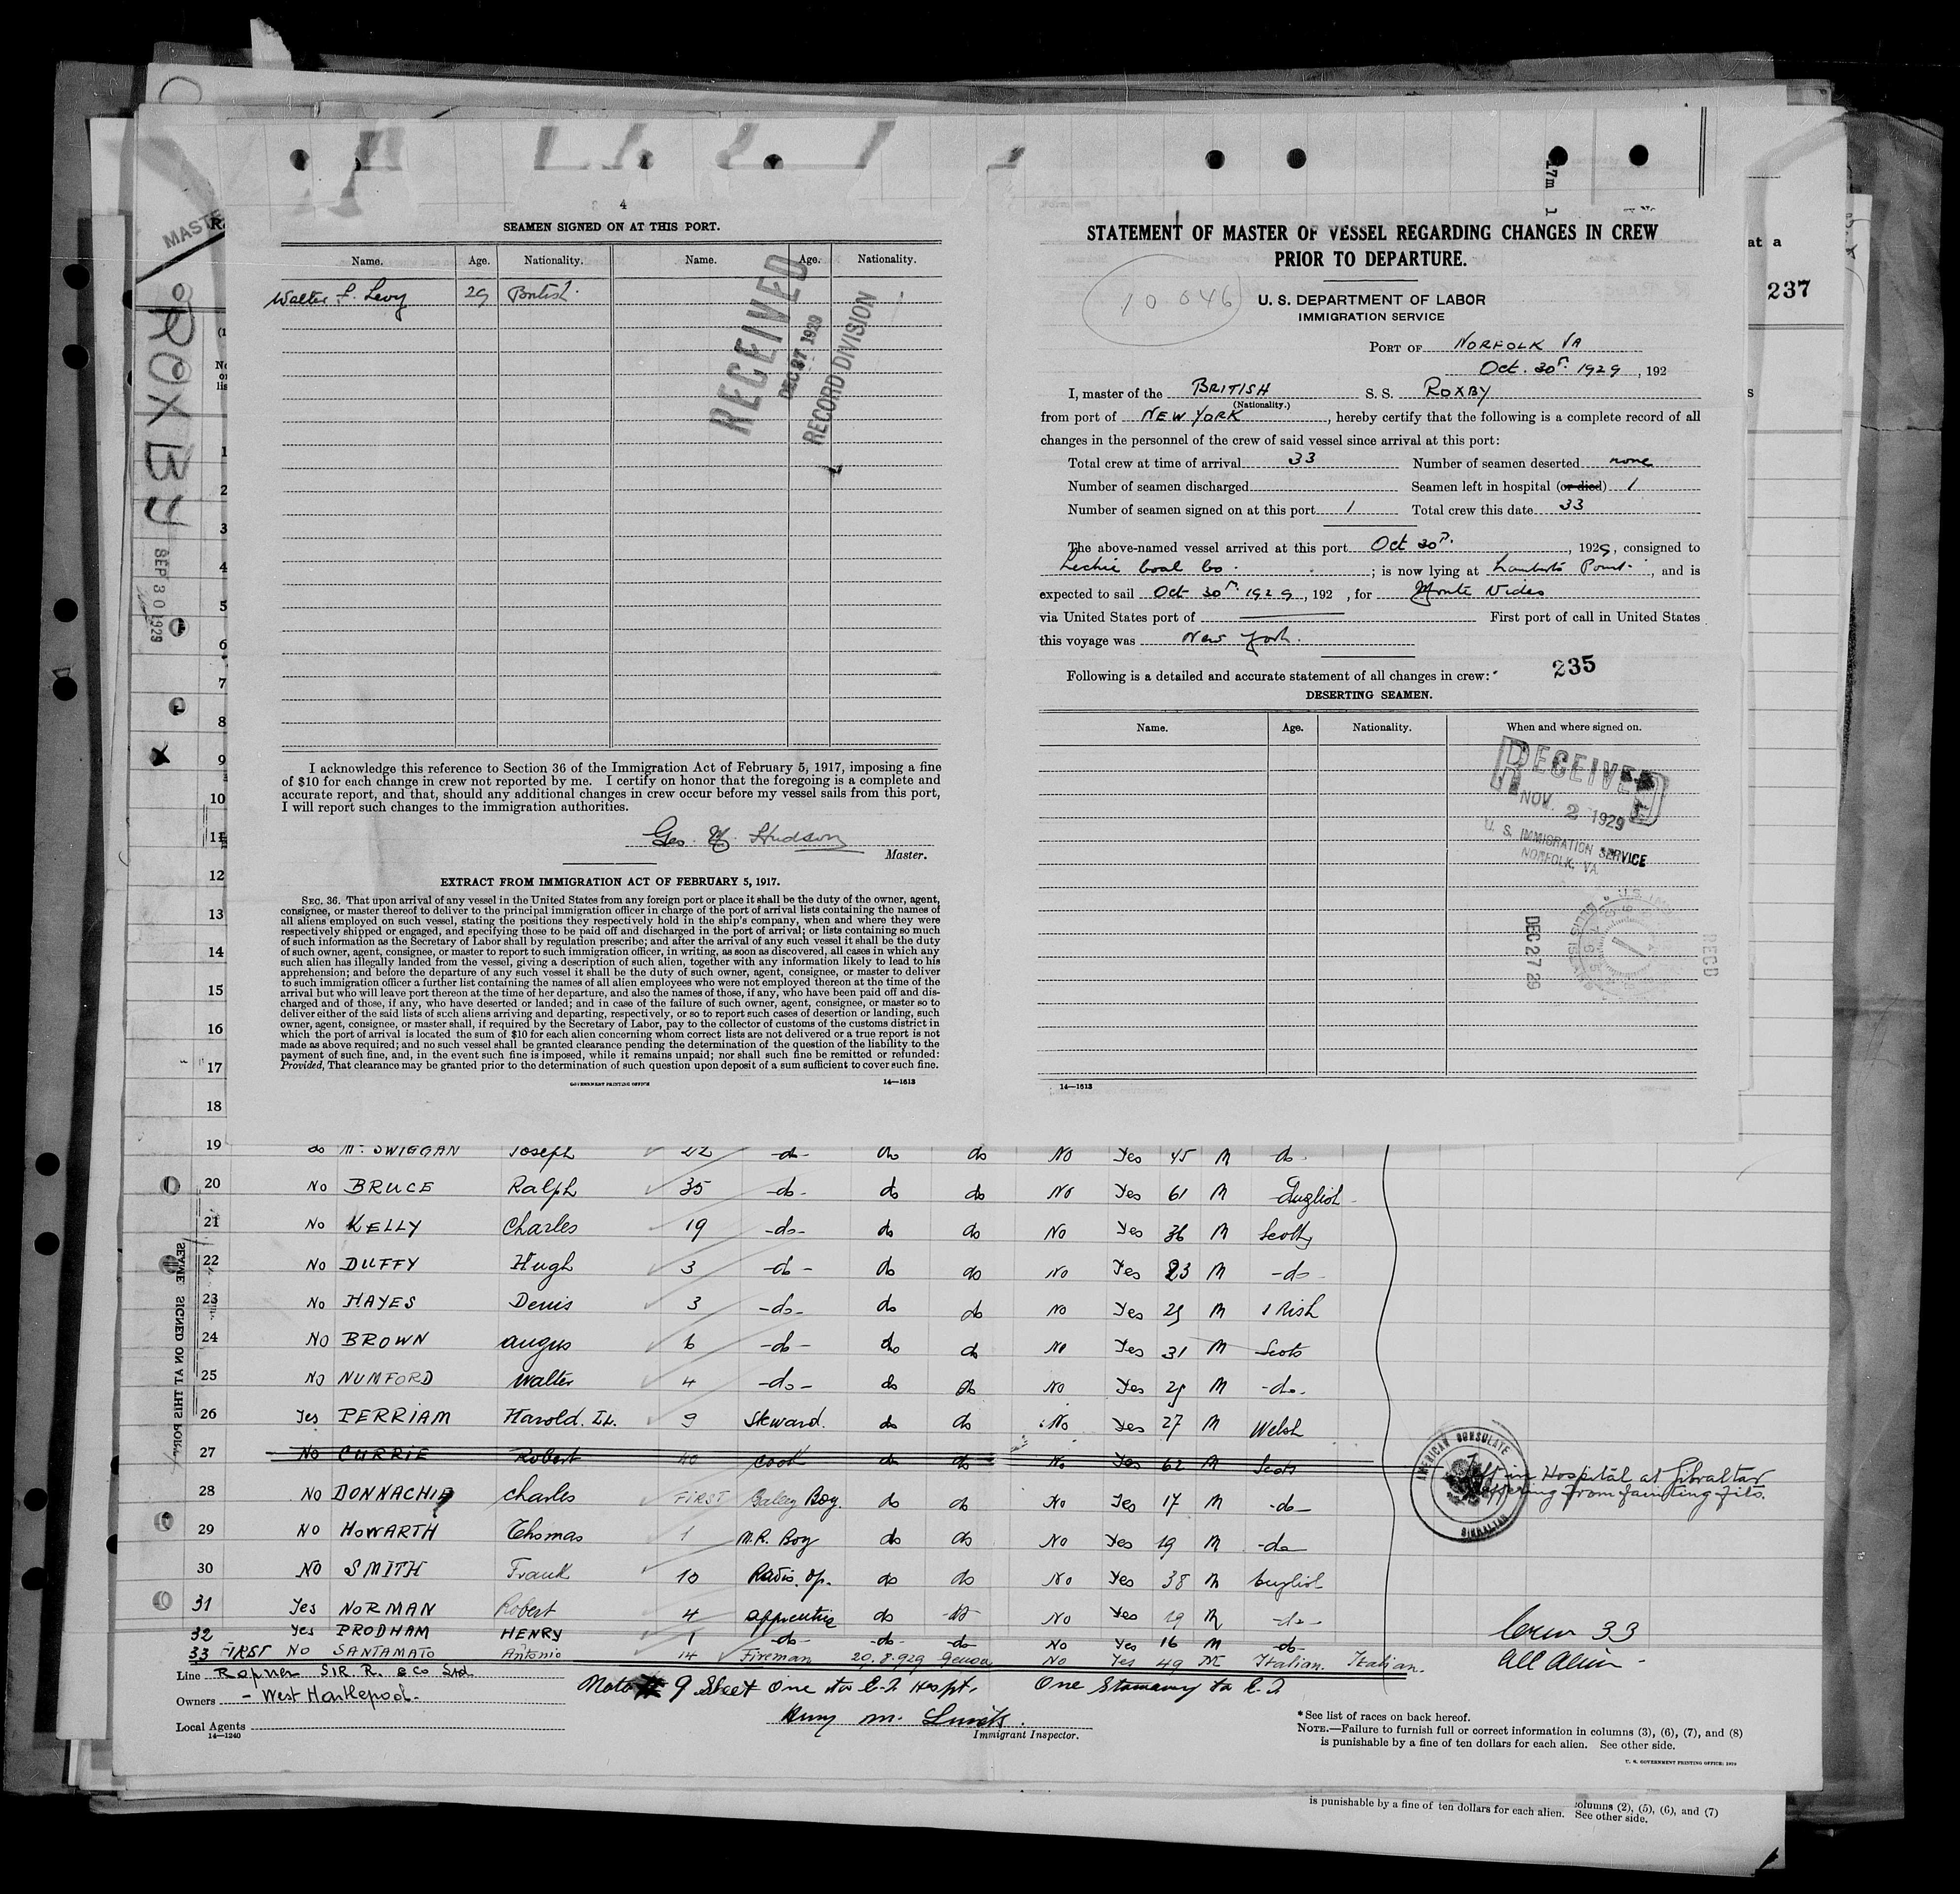 4
SEAMEN SIGNED ON AT THIS PORT.
Name. Age. Nationality. Name. Age. Nationality.
Walter F. Levy 29 British
RECEIVED
DEC 27 1929
RECORD DIVISION
I acknowledge this reference to Section 36 of the Immigration Act of February 5, 1917, imposing a fine
of $10 for each change in crew not reported by me. I certify on honor that the foregoing is a complete and
accurate report, and that, should any additional changes in crew occur before my vessel sails from this port,
I will report such changes to the immigration authorities.
Geo. Hudson
Master.
EXTRACT FROM IMMIGRATION ACT OF FEBRUARY 5, 1917.
SEC. 36. That upon arrival of any vessel in the United States from any foreign port or place it shall be the duty of the owner, agent,
consignee, or master thereof to deliver to the principal immigration officer in charge of the port of arrival lists containing the names of
all aliens employed on such vessel, stating the positions they respectively hold in the ship's company, when and where they were
respectively shipped or engaged, and specifying those to be paid off and discharged in the port of arrival; or lists containing so much
of such information as the Secretary of Labor shall by regulation prescribe; and after the arrival of any such vessel it shall be the duty
of such owner, agent, consignee, or master to report to such immigration officer, in writing, as soon as discovered, all cases in which any
such alien has illegally landed from the vessel, giving a description of such alien, together with any information likely to lead to his
apprehension; and before the departure of any such vessel it shall be the duty of such owner, agent, consignee, or master to deliver
to such immigration officer a further list containing the names of all alien employees who were not employed thereon at the time of the
arrival but who will leave port thereon at the time of her departure, and also the names of those, if any, who have been paid off and dis-
charged and of those, if any, who have deserted or landed; and in case of the failure of such owner, agent, consignee, or master so to
deliver either of the said lists of such aliens arriving and departing, respectively, or so to report such cases of desertion or landing, such
owner, agent, consignee, or master shall, if required by the Secretary of Labor, pay to the collector of customs of the customs district in
which the port of arrival is located the sum of $10 for each alien concerning whom correct lists are not delivered or a true report is not
made as above required; and no such vessel shall be granted clearance pending the determination of the question of the liability to the
payment of such fine, and, in the event such fine is imposed, while it remains unpaid; nor shall such fine be remitted or refunded:
Provided, That clearance may be granted prior to the determination of such question upon deposit of a sum sufficient to cover such fine.
GOVERNMENT PRINTING OFFICE 14—1613
STATEMENT OF MASTER OF VESSEL REGARDING CHANGES IN CREW
PRIOR TO DEPARTURE.
10 046
U. S. DEPARTMENT OF LABOR
IMMIGRATION SERVICE
PORT OF NORFOLK VA
Oct. 30. 1929, 192
I, master of the BRITISH S. S. ROXBY
(Nationality.)
from port of NEW YORK, hereby certify that the following is a complete record of all
changes in the personnel of the crew of said vessel since arrival at this port:
Total crew at time of arrival 33 Number of seamen deserted none
Number of seamen discharged Seamen left in hospital (or died) 1
Number of seamen signed on at this port 1 Total crew this date 33
The above-named vessel arrived at this port Oct 30, 1929, consigned to
Coal Co.; is now lying at Lamberts Point, and is
expected to sail Oct 30 1929, 192 , for Monte Video
via United States port of First port of call in United States
this voyage was New York.
Following is a detailed and accurate statement of all changes in crew: 235
DESERTING SEAMEN.
Name. Age. Nationality. When and where signed on.
RECEIVED
NOV. 2 1929
U. S. IMMIGRATION SERVICE
NORFOLK, VA.
DEC 27 29
RECD
14—1613
at a
237
ROXBY
SEP 30 1929
1
2
3
4
5
6
7
8
9
10
11
12
13
14
15
16
17
18
19 do McSWIGGAN Joseph 22 -do- do do No Yes 45 M -do-
20 No BRUCE Ralph 35 -do- do do No Yes 61 M English
21 No KELLY Charles 19 -do- do do No Yes 36 M Scotts
22 No DUFFY Hugh 3 -do- do do No Yes 23 M -do-
23 No HAYES Denis 3 -do- do do No Yes 29 M Irish
24 No BROWN Angus 6 -do- do do No Yes 31 M Scots
25 No NUMFORD Walter 4 -do- do do No Yes 29 M -do-
26 Yes PERRIAM Harold. 9 Steward. do do No Yes 27 M Welsh
27 No CURRIE Robert 40 Cook do do No Yes 62 M Scots
Left in Hospital at Gibraltar
suffering from fainting fits.
AMERICAN CONSULATE
GIBRALTAR
28 No DONNACHIE Charles FIRST Galley Boy. do do No Yes 17 M -do-
29 No HOWARTH Thomas 1 M.R. Boy do do No Yes 19 M -do-
30 No SMITH Frank 10 Radio. Op. do do No Yes 38 M English
31 Yes NORMAN Robert 4 apprentice do do No Yes 19 M -do-
32 Yes PRODHAM HENRY 1 -do- -do- -do- No Yes 16 M -do-
33 FIRST No SANTAMATO Antonio 14 Fireman 20.8.929 Genoa No Yes 49 M Italian. Italian.
Crew 33
All Alien
Line Ropner SIR R. & Co Ltd
Owners - West Hartlepool-
Local Agents
14—1240
Note # 9 Sheet One to E.I Hospt. One Stowaway to E.I
Immigrant Inspector.
*See list of races on back hereof.
NOTE.—Failure to furnish full or correct information in columns (3), (6), (7), and (8)
is punishable by a fine of ten dollars for each alien. See other side.
U. S. GOVERNMENT PRINTING OFFICE: 1929
columns (2), (5), (6), and (7)
is punishable by a fine of ten dollars for each alien. See other side.
SEAMEN SIGNED ON AT THIS PORT.